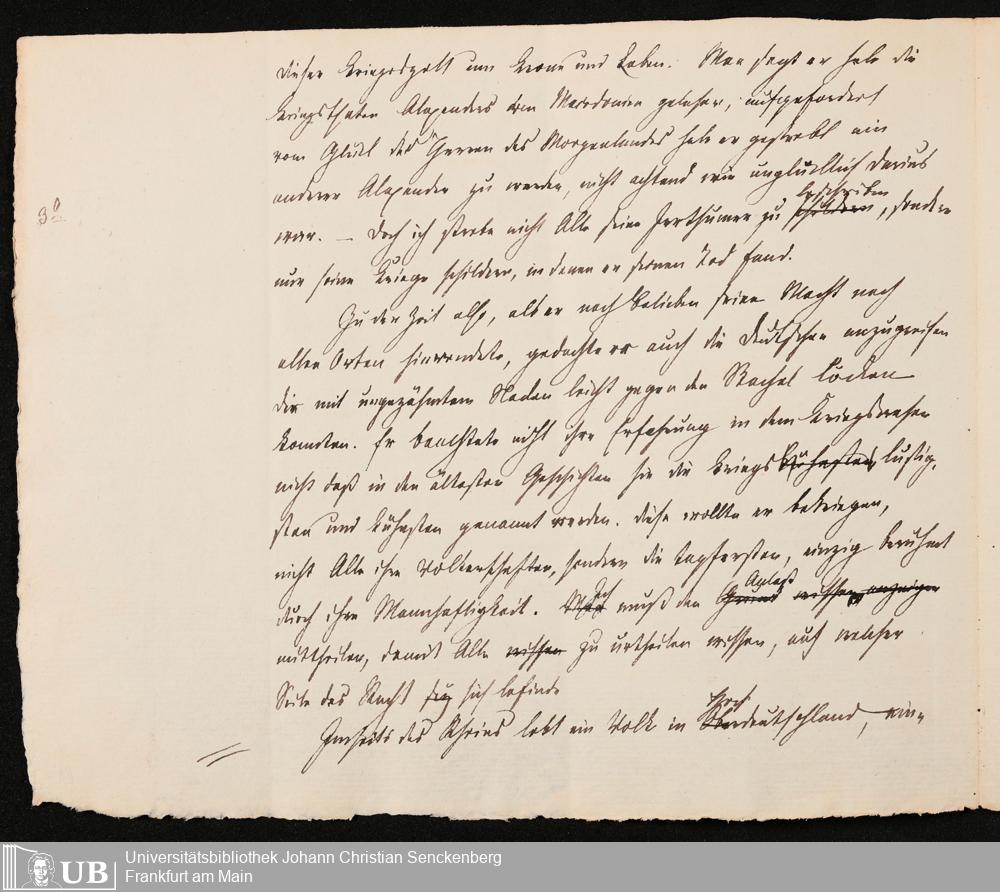 dieser Kriegsgott um Krone und Leben. Man sagt er habe die
Kriegsthaten Alexanders von Macedonien gelesen, aufgefordert
vom Glück des Herren des Morgenlandes habe er gestrebt ein
anderer Alexander zu werden, nicht achtend wie unglücklich Darius
beschreiben
war. – Doch ich strebe nicht Alle seine Irrthümer zu schildern, sondern
3
nur seine Kriege schildern, in denen er seinen Tod fand.
Zu der Zeit also, als er nach Belieben seine Macht nach
allen Orten hinwendete, gedachte er auch die Deutschen anzugreifen
die mit ungezähmtem Nacken leicht gegen den Stachel löcken
konnten. Er beachtete nicht ihre Erfahrung in dem Kriegswesen
nicht daß in den ältesten Geschichten sie die kriegs lustig-
sten und kühnsten genannt werden. Diese wollte er bekriegen,
nicht Alle ihre Völkerschaften, sondern die tapfersten, einzig berühmt
Anlaß
durch ihre Mannhaftigkeit. Doch muß den Grund wissen anzeigen
mittheilen, damit Alle wissen zu urtheilen wissen, auf welcher
Seite das Recht sich befinde
Hoch
Jenseits des Rheins lebt ein Volk in deutschland, ein-